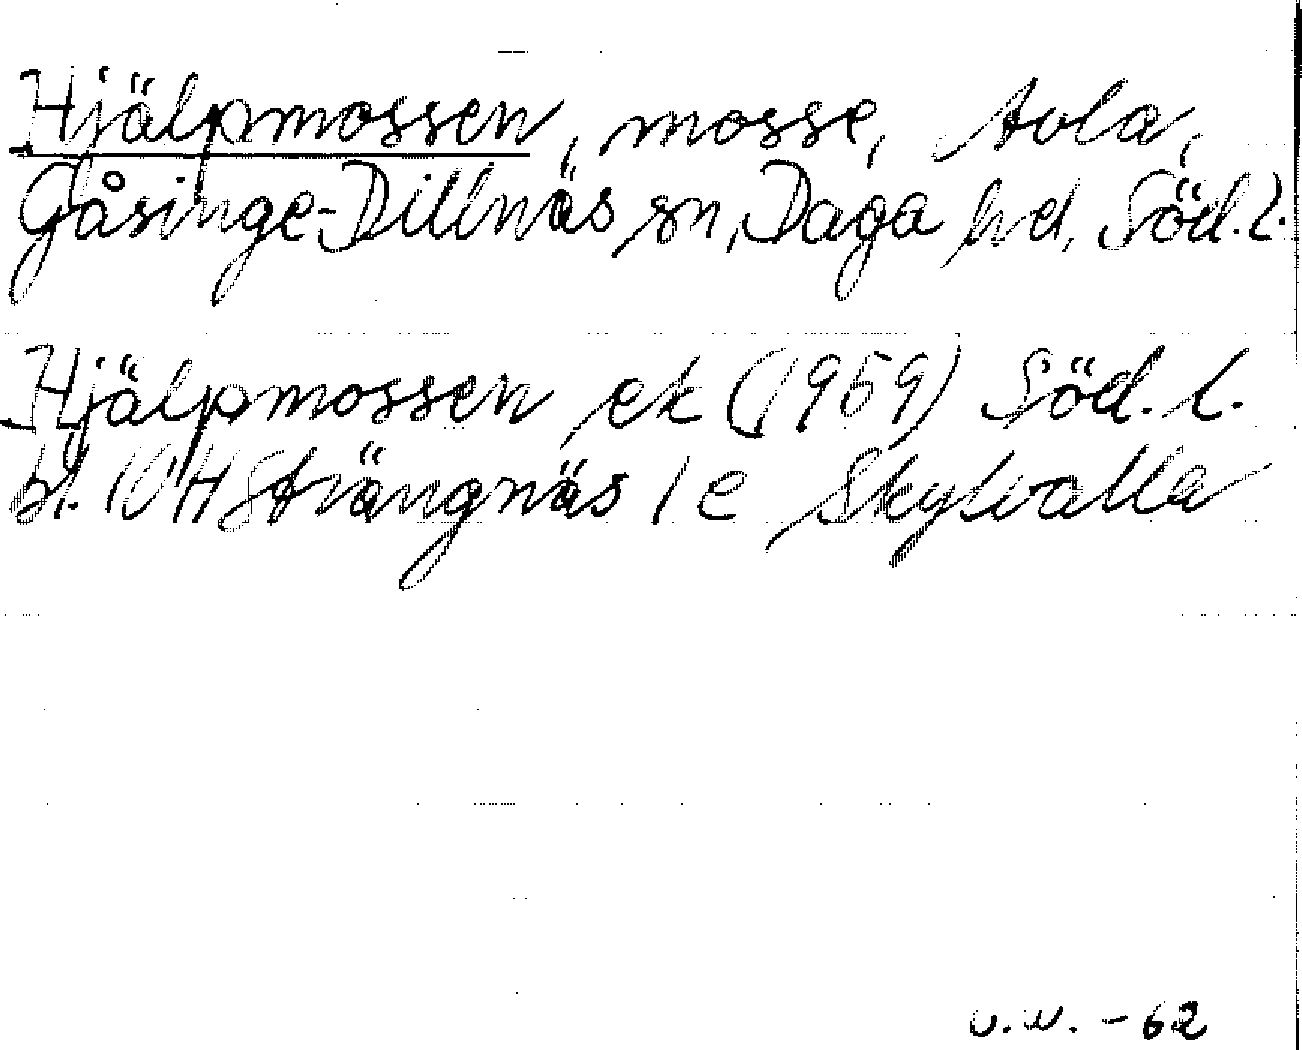 Hjälpmossen, mosse, Avla,
Gåsinge-Dillnäs sn, Daga hd, Söd. l.
Hjälpmossen ek (1959) Söd. l.
bl. 10 H Strängnäs 1 e Skytvalla
u.w. -62